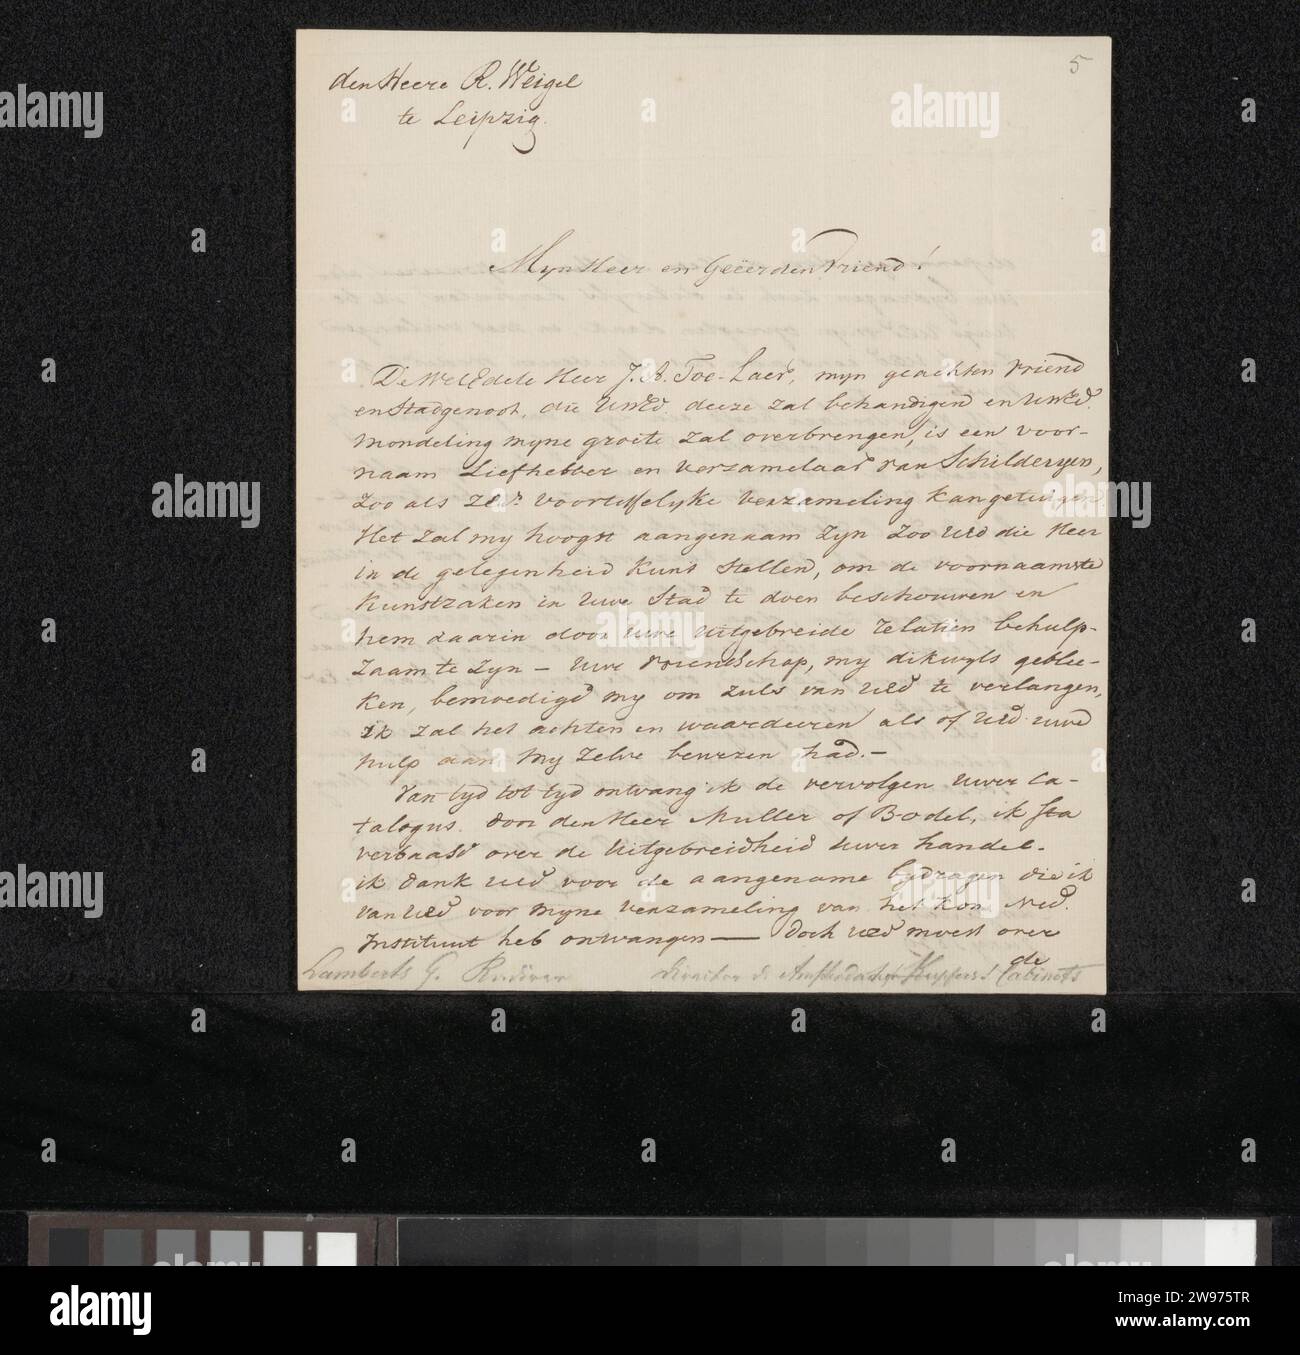 5
den Heere R. Weigel
te Leipzig.
Mijn Heer en Geëerden Vriend!
De WelEdele Heer J. A. Toe-Laer, mijn geachten vriend
en Stadgenoot, die UWEd. deeze zal behandigen en UWEd.
mondeling mijne groete zal overbrengen, is een voor-
naam Liefhebber en verzamelaar van Schilderijen,
zoo als zijn voortreffelijke verzameling kan getuigen.
Het zal mij hoogst aangenaam zijn zoo UEd die Heer
in de gelegenheid kunt stellen, om de voornaamste
Kunstzaken in Uwe Stad te doen beschouwen en
hem daarin door uwe uitgebreide relatien behulp-
zaam te zijn – Uwe vriendschap, mij dikwijls geblee-
ken, bemoedigd mij om zulks van UEd te verlangen,
ik zal het achten en waardeeren als of UEd. uwe
hulp aan mij zelve bewezen had. –
Van tijd tot tijd ontvang ik de vervolgen Uwer Ca-
talogus. door den Heer Muller of Bodel, ik sta
verbaasd over de uitgebreidheid uwer handel.
ik dank UEd voor de aangename bijdragen die ik
van UEd voor mijne verzameling van het Kon. Ned.
Instituut heb ontvangen — doch UEd moest over
de
Lamberts G. Director d. Amsterdamer Kupfers! Cabinets
alamy
2W975TR
www.alamy.com